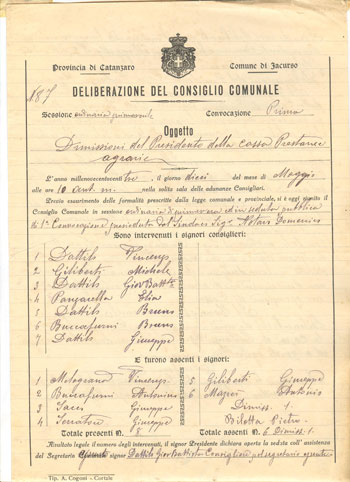 Provincia di Catanzaro
Comune di Jacurso
DELIBERAZIONE DEL CONSIGLIO COMUNALE
187
Sessione ordinaria primaverile
Convocazione Prima
Oggetto
Dimissioni del Presidente della cassa Prestanze
agrarie
L'anno millenovecentotre il giorno dieci del mese di Maggio
alle ore 10 ant. m. nella solita sala delle adunanze Consigliari.
Previo esaurimento delle formalità prescritte dalla legge comunale e provinciale, si è oggi riunito il
Consiglio Comunale in sessione ordinaria di primavera ed in seduta pubblica
di 1ª Convocazione presieduta dal Sindaco Sigr Notaro Domenico
Sono intervenuti i signori consiglieri:
1 Dattilo Vincenzo
2 Giliberti Michele
3 Dattilo Giov Battta
4 Pangarella Elia
5 Dattilo Bruno
6 Buccafurni Bruno
7 Dattilo Giuseppe
E furono assenti i signori:
1 Vincenzo
2 Buccafurni Antonino
3 Giuseppe
4 Serratore Giuseppe
5 Giliberti Giuseppe
6 Antonio
Dimiss. 1
Bilotta Pietro
Totale presenti N. 8
Totale assenti N. 6 Dimiss. 1
Risultato legale il numero degli intervenuti, il signor Presidente dichiara aperta la seduta coll'assistenza
del Segretario signor Dattilo Giov Battista Consigliere
Tip. A. Cogoni - Cortale